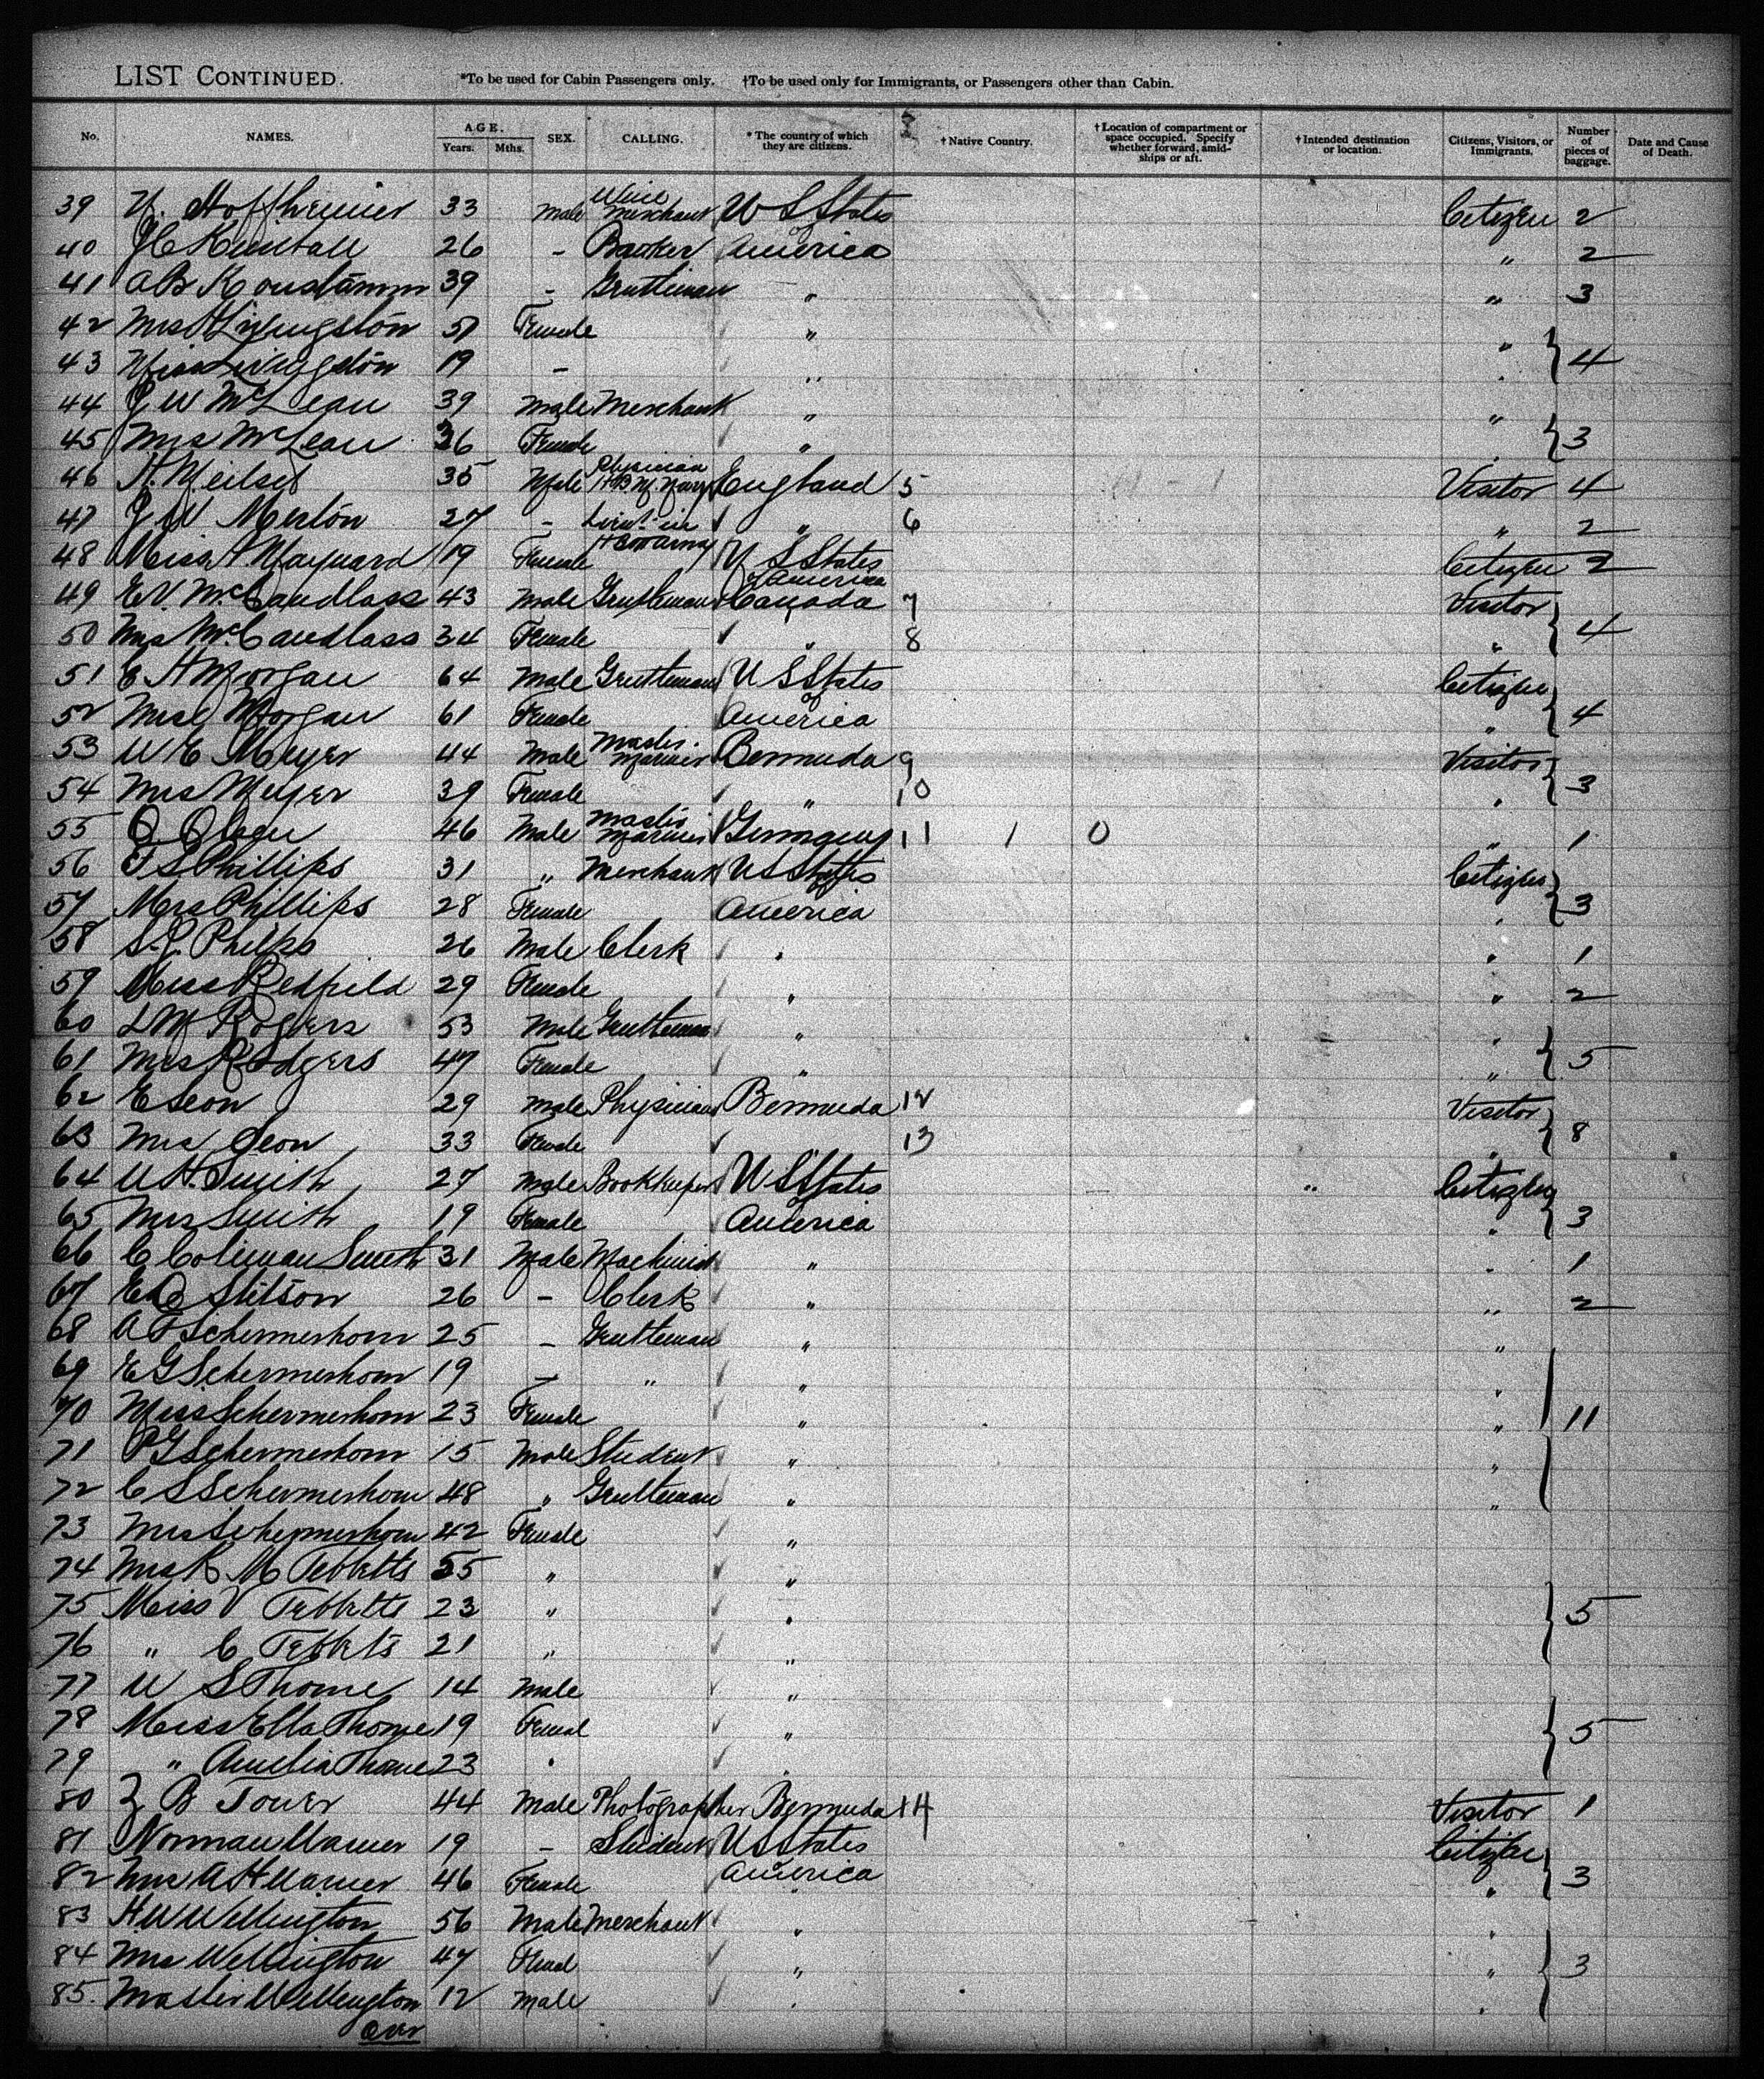 LIST CONTINUED. *To be used for Cabin Passengers only. †To be used only for Immigrants, or Passengers other than Cabin.
No. NAMES. AGE. Years. Mths. SEX. CALLING. * The country of which they are citizens. † Native Country. † Location of compartment or space occupied. Specify whether forward, amidships or aft. † Intended destination or location. Citizens, Visitors, or Immigrants. Number of pieces of baggage. Date and Cause of Death.
39 33 Male Wine Merchant U S States Citizen 2
of
40 J C Kimball 26 - Banker America " 2
41 39 - Gentleman " " 3
42 Mrs Livingston 51 Female " "
43 Miss Livingston 19 - " " } 4
44 J W McLean 39 Male Merchant " "
45 Mrs McLean 36 Female " " } 3
46 35 Male Physician H B M. Navy England 5 Visitor 4
47 J W Merton 27 - Lieut. in H B M Army " 6 " 2
48 Miss A Maynard 19 Female U S States of America Citizen 2
49 E V. McCandlass 43 Male Gentleman Canada 7 Visitor
50 Mrs McCandlass 34 Female " 8 " } 4
51 E A Morgan 64 Male Gentleman U S States Citizen
of
52 Mrs Morgan 61 Female America " } 4
53 W E Meyer 44 Male Master Mariner Bermuda 9 Visitor
54 Mrs Meyer 39 Female " 10 " } 3
55 O Olsen 46 Male Master Mariner 11 1 0 " 1
56 F S Phillips 31 " Merchant U S States Citizen
of
57 Mrs Phillips 28 Female America " } 3
58 S. J. Phelps 26 Male Clerk " " 1
59 Miss Redfield 29 Female " " 2
60 L M Rogers 53 Male Gentleman " "
61 Mrs Rodgers 47 Female " " } 5
62 E Seon 29 Male Physician Bermuda 12 Visitor
63 Mrs Seon 33 Female " 13 " } 8
64 W H. Smith 27 Male Bookkeeper U S States Citizen
of
65 Mrs Smith 19 Female America " } 3
66 C Coleman Smith 31 Male Machinist " " 1
67 E D Stitson 26 - Clerk " " 2
68 A F Schermerhorn 25 - Gentleman " "
69 E G Schermerhorn 19 - " " "
70 Miss Schermerhorn 23 Female " " 11
71 P G Schermerhorn 15 Male Student " "
72 C S Schermerhorn 48 " Gentleman " "
73 Mrs Schermerhorn 42 Female "
74 Mrs K M Tebbetts 55 " "
75 Miss V Tebbetts 23 " " } 5
76 " C Tebbets 21 " "
77 W S Thorne 14 Male "
78 Miss Ella Thorne 19 Femal " } 5
79 " Amelia Thorne 23 " "
80 Z B Tower 44 Male Photographer Bermuda 14 Visitor 1
81 Norman Warner 19 - Student U S States Citizen
of
82 Mrs A H Warner 46 Female America " } 3
83 H W Wellington 56 Male Merchant " "
84 Mrs Wellington 47 Femal " " } 3
85. Master Wellington 12 Male " "
Over